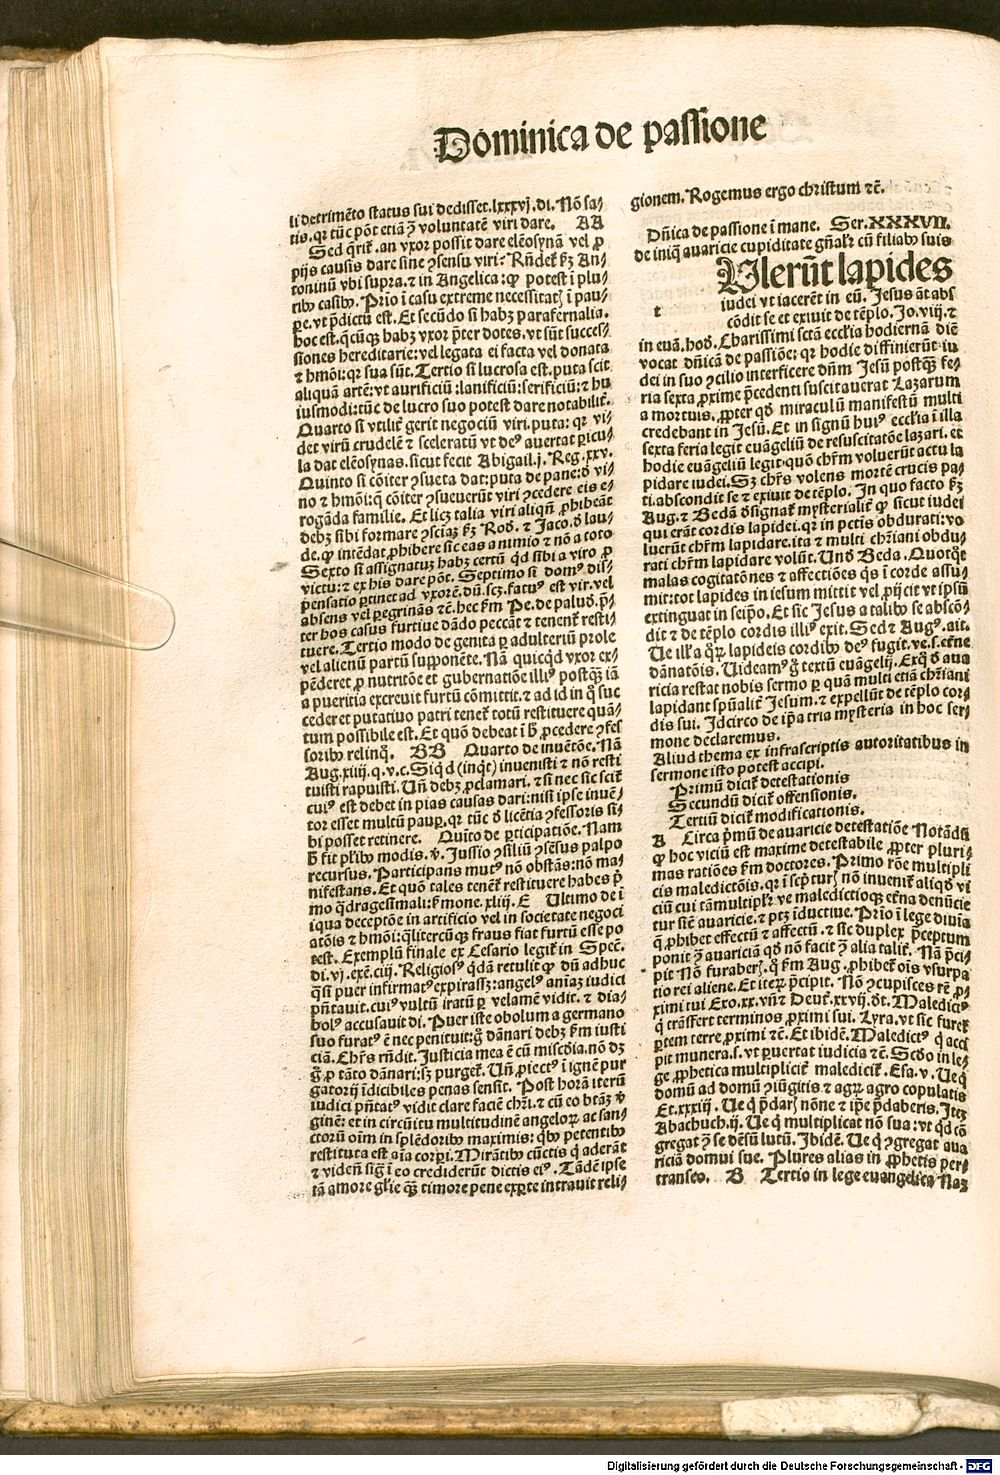 Dominica de passione
li detrimēto status sui dedisset.lxxxvj.di. Nō sa⸗
tis.qr tūc pōt etiā ꝯ̄ voluntatē viri dare. AA
Sed q̄rit᷑.an vxor possit dare elēosynā vel ꝓ
pijs causis dare sine ꝯsensu viri? Rn̄det᷑ ẜm An⸗
toninū vbi supra.⁊ in Angelica: ꝙ potest ī plu⸗
ribꝰ casibꝰ. Prīo ī casu extreme necessitat᷑ ī pau⸗
ꝑe.vt p̄dictū est. Et secūdo si habꝫ parafernalia.
hoc est.q̄cūqꝫ habꝫ vxor p̄ter dotes.vt sūt succes⸗
siones hereditarie:vel legata ei facta vel donata
⁊ hmōi:qr sua sūt. Tertio si lucrosa est.puta scit
aliquā artē:vt aurificiū:lanificiū:serificiū:⁊ hu
iusmodi:tūc de lucro suo potest dare notabilit᷑.
Quarto si vtilit᷑ gerit negociū viri.puta: qr vi⸗
det virū crudelē ⁊ sceleratū vt deꝰ auertat ꝑicu⸗
la dat elēosynas.sicut fecit Abigail.j. Reg.xxv.
Quinto si cōiter ꝯsueta dat:puta de pane:ō vi⸗
no ⁊ hmōi: q̄ cōiter ꝯsueuerūt viri ꝯcedere eis e⸗
rogāda familie. Et licꝫ talia viri aliqn̄ ꝓhibeāt
debꝫ sibi formare ꝯsciaꝫ ẜm Rod̄. ⁊ Jaco.ō lau⸗
de.ꝙ intēdat ꝓhibere sic eas a nimio ⁊ nō a toto
Sexto si assignatuꝫ habꝫ certū qd̄ sibi a viro ꝓ
victu:⁊ ex his dare pōt. Septimo si domꝰ dis⸗
pensatio ꝑtinet ad vxorē.dū.scꝫ.fatuꝰ est vir.vel
absens vel ꝑegrinās ⁊c̄.hec ẜm Pe.de palud.p̄⸗
ter hos casus furtiue dādo peccāt ⁊ tenent᷑ resti⸗
tuere. Tertio modo de genita ꝑ adulteriū prole
vel alienū partū supponēte. Nā quicq̄d vxor ex⸗
pēderet ꝓ nutritōe et gubernatiōe illiꝰ postqꝫ̄ iā
a pueritia excreuit furtū cōmittit.⁊ ad id in q̄ suc
cederet putatiuo patri tenet᷑ totū restituere quā⸗
tum possibile est. Et quō debeat ī ħ ꝓcedere ꝯfes
soribꝰ relinq̄. BB Quarto de inuētōe. Nā
Aug.xiiij.q.v.c.Siqd̄ (inqt̄) inuenisti ⁊ nō resti
tuisti rapuisti. Vn̄ debꝫ ꝓclamari.⁊ si nec sic scit᷑
cuiꝰ est debet in pias causas dari:nisi ipse inuē⸗
tor esset multū pauꝑ.qr tūc ō licētia ꝯfessoris si⸗
bi posset retinere. Quīto de ꝑticipatiōe. Nam
ħ fit pl'ibꝰ modis.v̄. Jussio ꝯsiliū ꝯsēsus palpo
recursus. Participans mutꝰ nō obstās:nō ma⸗
nifestans. Et quō tales tenet᷑ restituere habes p̄
mo q̄dragesimali:ẜmone.xliij.E Ultimo de ī
iqua deceptōe in artificio vel in societate negoci
atōis ⁊ hmōi:q̄litercūqꝫ fraus fiat furtū esse po
test. Exemplū finale ex Cesario legit᷑ in Spec̄.
di.vj.exē.ciij. Religiosꝰ q̄dā retulit ꝙ dū adhuc
q̄si puer infirmatꝰ expirassꝫ:angelꝰ aīaꝫ iudici
pn̄tauit.cuiꝰ vultū iratū ꝑ velamē vidit.⁊ dia⸗
bolꝰ accusauit dī. Puer iste obolum a germano
suo furatꝰ ē nec penituit:g̊ dānari debꝫ ẜm iusti
ciā. Chr̄s rn̄dit. Justicia mea ē cū miscd̄ia.nō dꝫ
g̊ ꝓ tāto dānari:sꝫ purget᷑. Vn̄ ꝓiectꝰ ī ignē pur
gatorij īdicibiles penas sensit. Post horā iterū
iudici pn̄tatꝰ vidit clare faciē chr̄i.⁊ cū eo btāꝫ v̄
ginē: et in circūitu multitudinē angeloꝝ ac san⸗
ctorū oīm in splēdoribꝰ maximis: qbꝰ petentibꝰ
restituta est aīa corpi. Mirātibꝰ cūctis q̄ aderāt
⁊ viden̄ sig̊ ī eo crediderūt dictis eiꝰ. Tādē ipse
tā amore gl'ie qꝫ̄ timore pene exꝑte intrauit reli⸗
gionem. Rogemus ergo christum ⁊c̄.
Dn̄ica de passione ī mane. Ser.XXXVII.
de iniq̄ auaricie cupiditate gn̄al'r cū filiabꝰ suis
t
Ulerūt lapides
iudei vt iacerēt in eū. Jesus āt abs
cōdit se et exiuit de tēplo. Jo.viij.⁊
in euā.hod̄. Charissimi sctā eccl'ia hodiernā diē
vocat dn̄icā de passiōe: qr hodie diffinierūt iu
dei in suo ꝯcilio interficere dn̄m Jesū postqꝫ̄ fe⸗
ria sexta ꝓxime p̄cedenti suscitauerat Lazarum
a mortuis. ꝓpter qd̄ miraculū manifestū multi
credebant in Jesū. Et in signū huiꝰ eccl'ia ī illa
sexta feria legit euāgeliū de resuscitatōe lazari.et
hodie euāgeliū legit.quō chr̄m voluerūt actu la
pidare iudei. Sꝫ chr̄s volens mortē crucis pa⸗
ti.abscondit se ⁊ exiuit de tēplo. In quo facto ẜm
Aug.⁊ Bedā ōsignat᷑ mysterialit᷑ ꝙ sicut iudei
qui erāt cordis lapidei.qr in pctis obdurati:vo
luerūt chr̄m lapidare.ita ⁊ multi chr̄iani obdu⸗
rati chr̄m lapidare volūt. Und̄ Beda. Quotq̄t
malas cogitatōnes ⁊ affectiōes q̄s ī corde assu⸗
mit:tot lapides in iesum mittit vel ꝓijcit vt ipsū
extinguat in seipō. Et sic Jesus a talibꝰ se abscō⸗
dit ⁊ de tēplo cordis illiꝰ exit. Sed ⁊ Augꝰ.ait.
Ue ill'a q̄ꝝ lapideis cordibꝰ deꝰ fugit.ve.s.et̄ne
dānatōis. Uideamꝰ g̊ textū euāgelij. Exq̊ ō aua
ricia restat nobis sermo ꝑ quā multi etiā chr̄iani
lapidant spūalit᷑ Jesum.⁊ expellūt de tēplo cor⸗
dis sui. Jdcirco de ip̄a tria mysteria in hoc ser⸗
mone declaremus.
Aliud thema ex infrascriptis autoritatibus in
sermone isto potest accipi.
Primū dicit᷑ detestationis
Secundū dicit᷑ offensionis.
Tertiū dicit᷑ modificationis.
A Circa p̄mū de auaricie detestatiōe Notādū
ꝙ hoc viciū est maxime detestabile ꝓpter pluri⸗
mas ratiōes ẜm doctores. Primo rōe multipli
cis maledictōis.qr ī scpturꝭ nō inuenit᷑ aliqd̄ vi
ciū cui tāmultipl'r ve maledictioqꝫ et̄na denūcie
tur sic̄ auaricie.⁊ ptꝫ īductiue. Prīo ī lege diuīa
q̄ ꝓhibet effectū ⁊ affectū.⁊ sic duplex p̄ceptum
ponit ꝯ̄ auariciā qd̄ nō facit ꝯ̄ alia talit᷑. Nā p̄ci⸗
pit Nō furaberꝭ.q̊ ẜm Aug.ꝓhibet᷑ oīs vsurpa
tio rei aliene. Et iteꝝ p̄cipit. Nō ꝯcupisces rē ꝓ⸗
ximi tui Exo.xx.vn̄ ⁊ Deut᷑.xxvij.d̄t. Maledictꝰ
q̄ trāsfert terminos ꝓximi sui. Lyra.vt sic furet᷑
ꝑtem terre ꝓximi ⁊c̄. Et ibidē. Maledictꝰ q̄ acci
pit munera.s.vt ꝑuertat iudicia ⁊c̄. Scd̄o in le⸗
ge ꝓphetica multiplicit᷑ maledicit᷑. Esa.v. Ue q̄
domū ad domū ꝯiūgitis ⁊ agꝝ agro copulatis
Et.xxxiij. Ue q̄ p̄darꝭ nōne ⁊ ip̄e p̄daberis. Jteꝫ
Abachuch.ij. Ue q̄ multiplicat nō sua:vt qd̄ cō
gregat ꝯ̄ se dēsū lutū. Jbidē. Ue q̄ ꝯgregat aua
riciā domui sue. Plures alias in ꝓphetis per⸗
transeo. B Tertio in lege euangelica Naꝫ
Digitalisierung gefördert durch die Deutsche Forschungsgemeinschaft - DFG